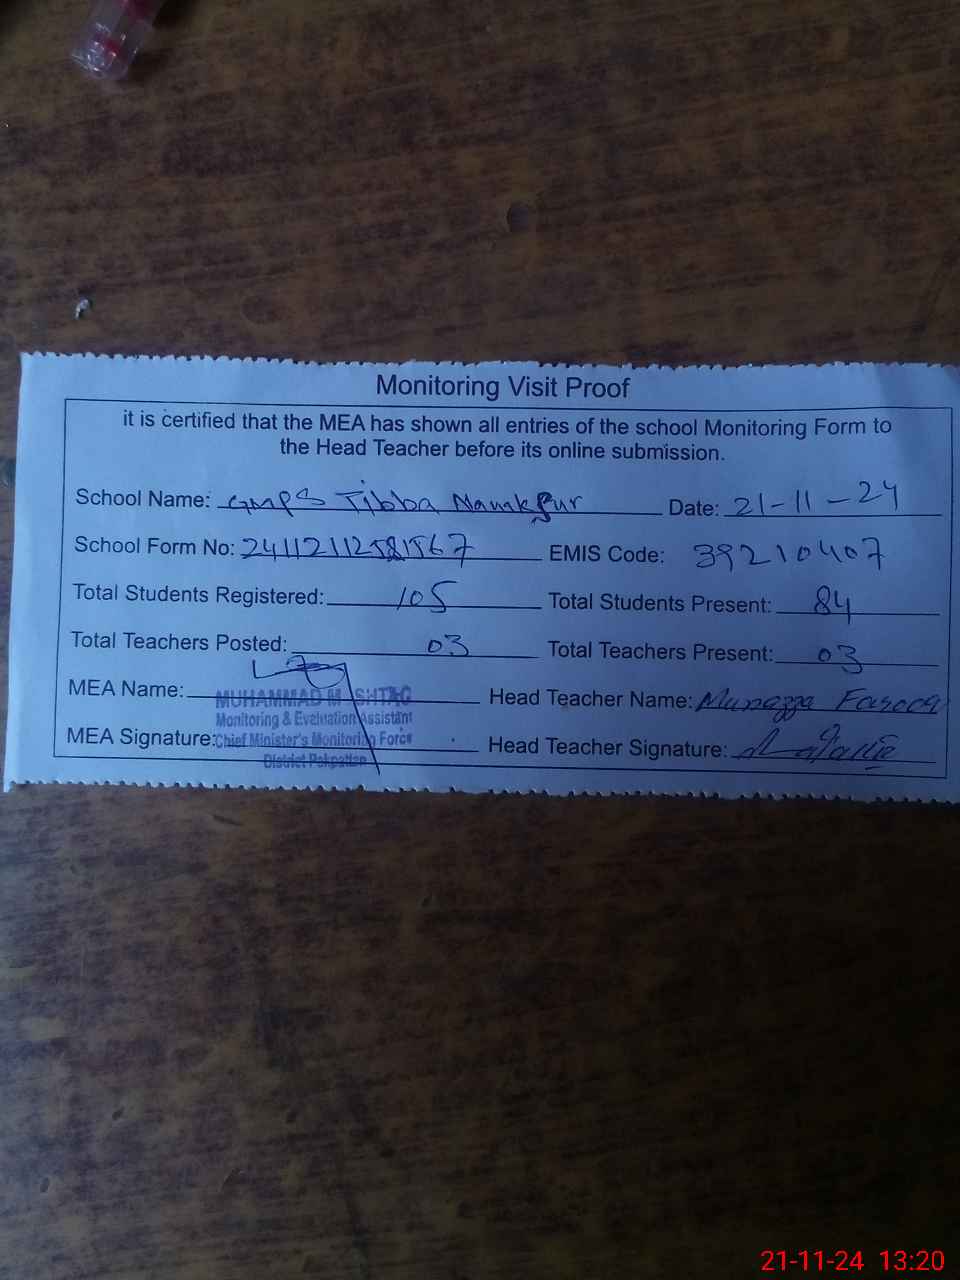 Monitoring Visit Proof
it is certified that the MEA has shown all entries of the school Monitoring Form to
the Head Teacher before its online submission.
School Name: GMPS Tibba Nanakpur Date: 21-11-24
School Form No: EMIS Code: 39210407
Total Students Registered: 105 Total Students Present: 84
Total Teachers Posted: 03 Total Teachers Present: 03
MEA Name: MUHAMMAD M SHTAQ Head Teacher Name: Munazza Farooq
Monitoring & Evaluation Assistant
MEA Signature: Chief Minister's Monitoring Force Head Teacher Signature:
District Pakpattan
21-11-24 13:20